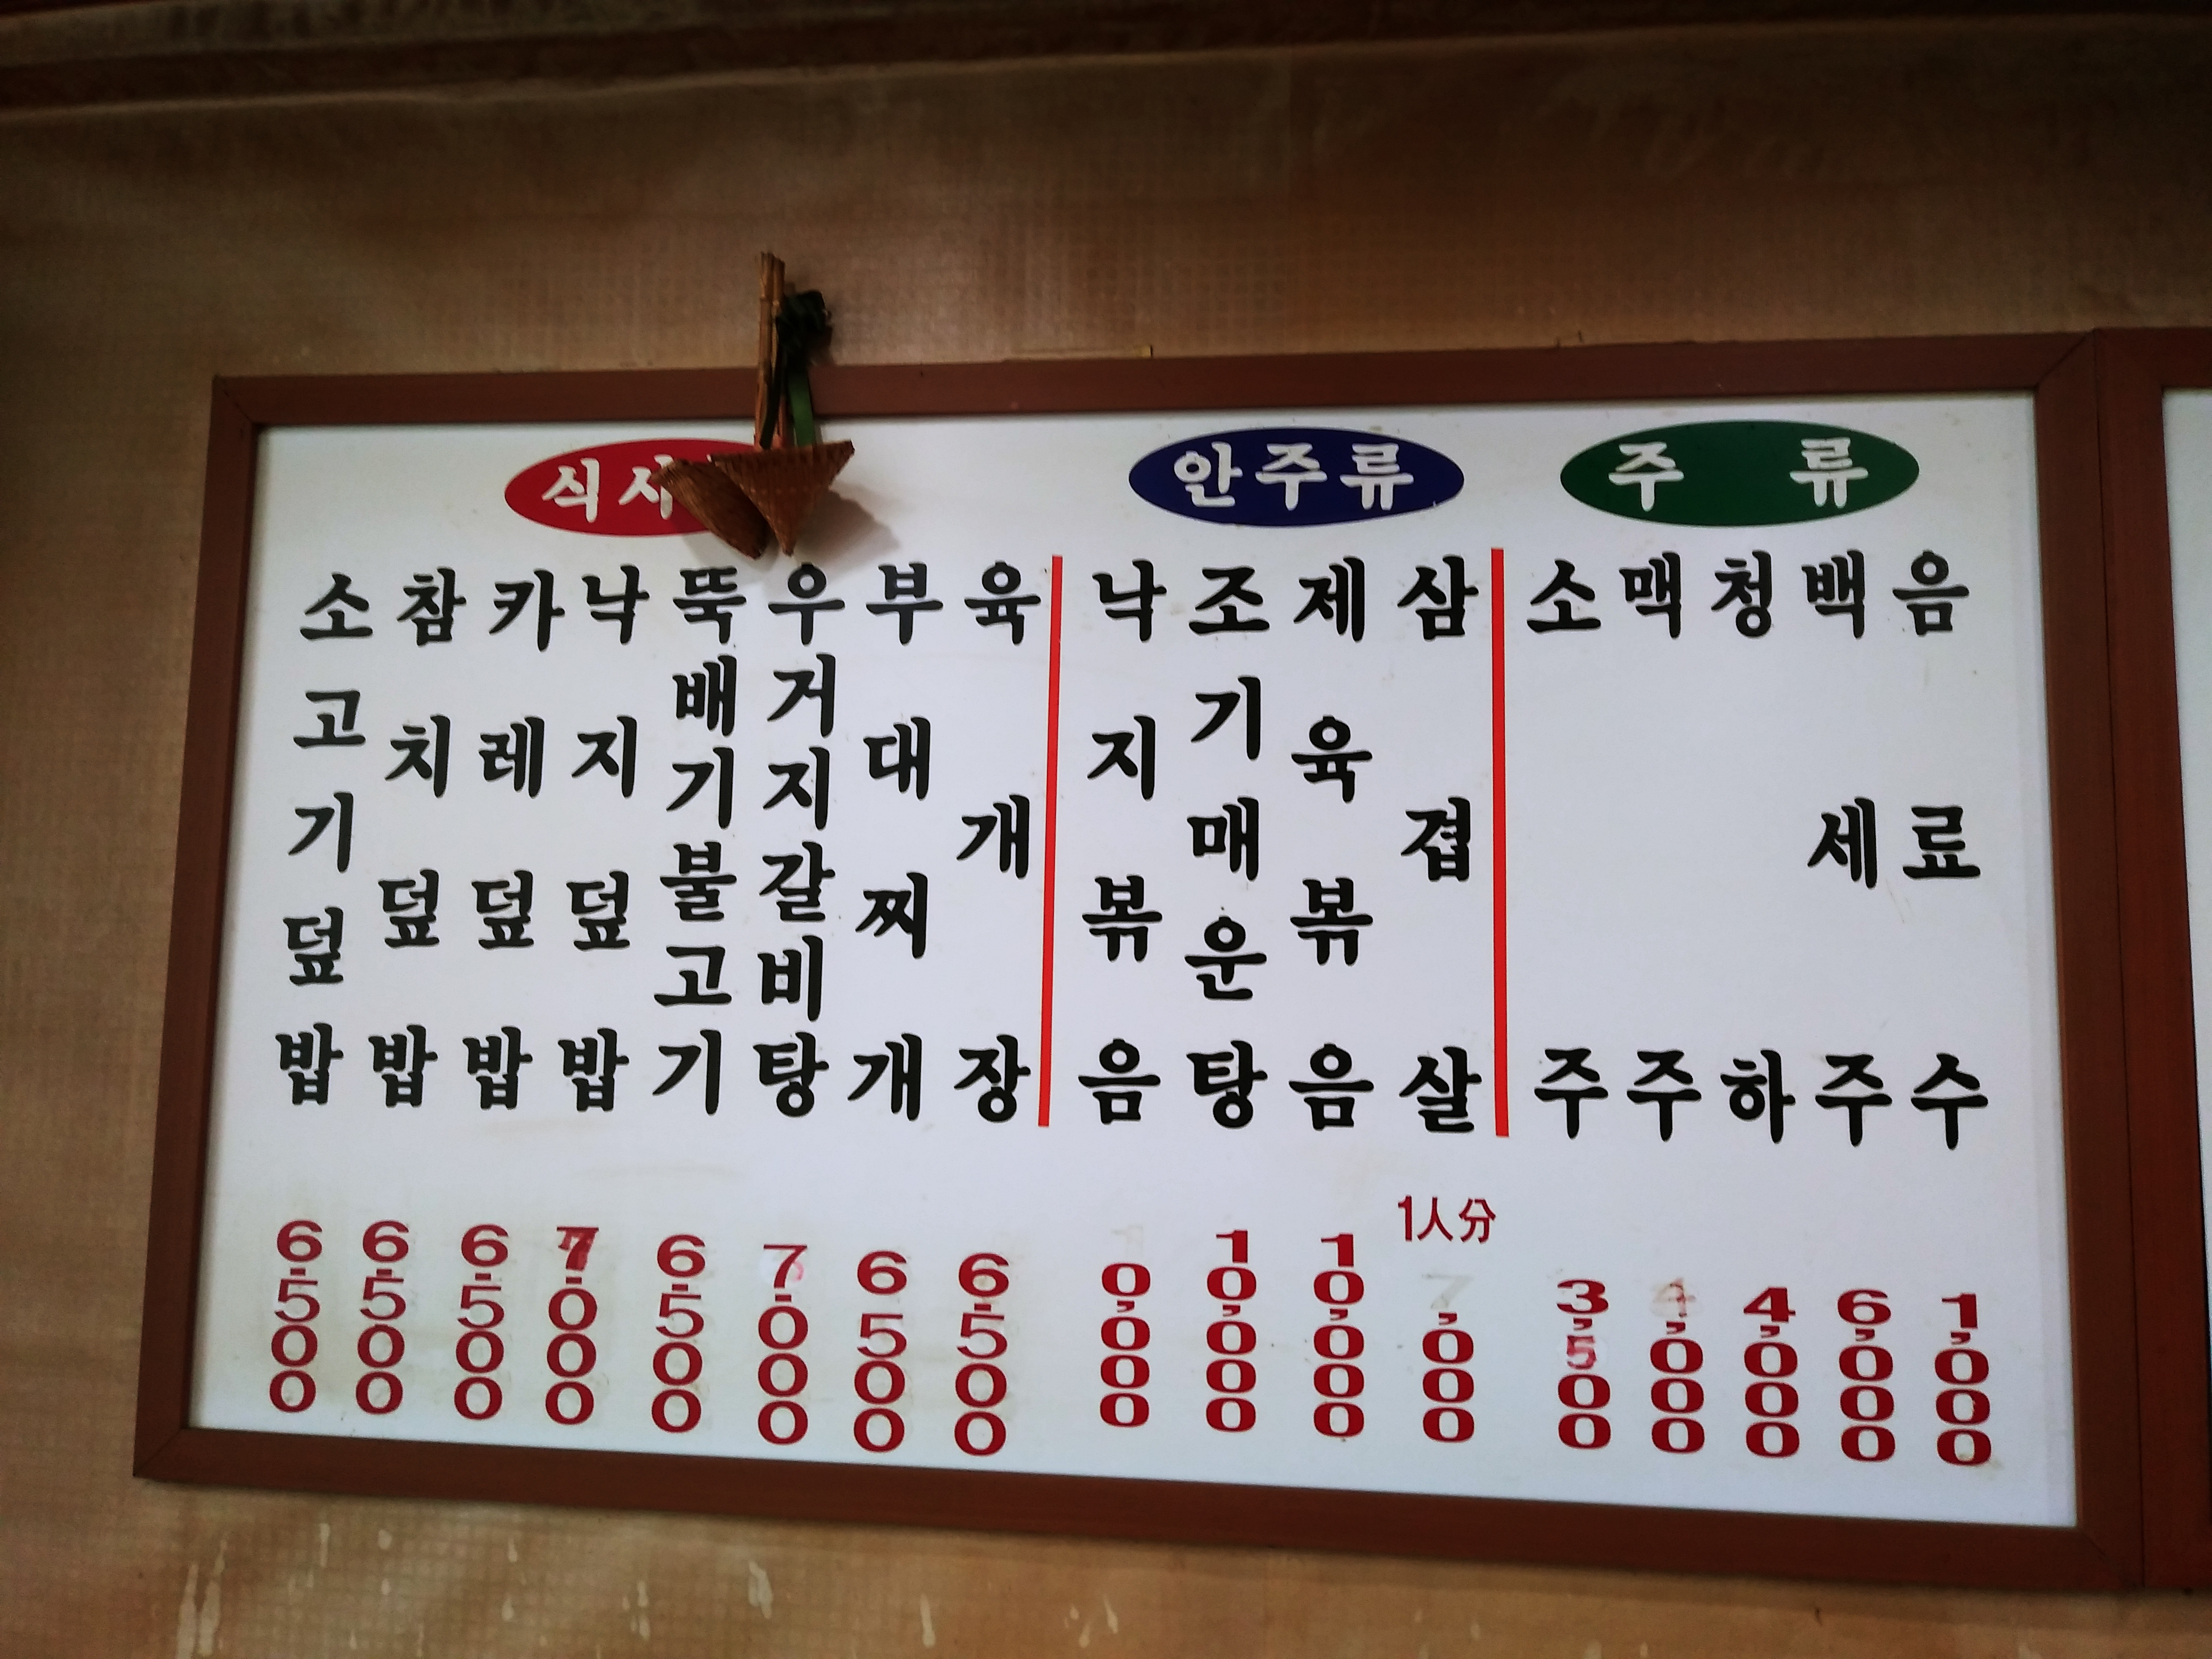 식사
안주류
주 류
소고기덮밥
참치덮밥
카레덮밥
낙지덮밥
뚝배기불고기
우거지갈비탕
부대찌개
육개장
낙지볶음
조기매운탕
제육볶음
삼겹살
소주
맥주
청하
백세주
음료수
6.500
6.500
6.500
7.000
6.500
7.000
6500
6.500
0,000
10,000
10,000
1人分
7,000
3,500
4,000
4,000
6,000
1,000